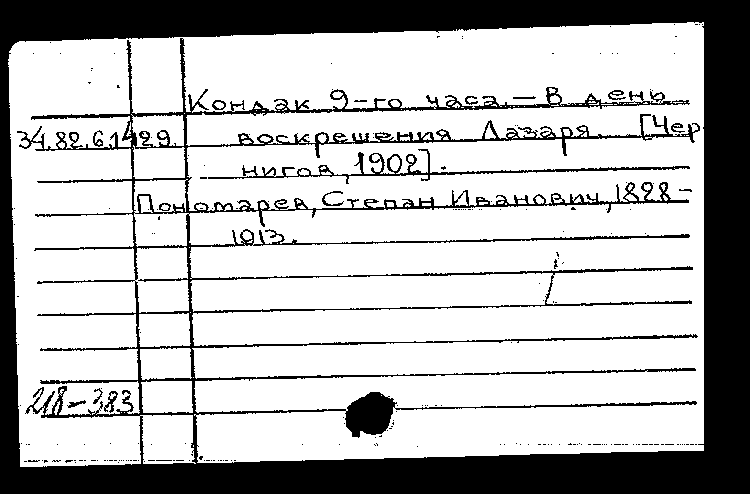 Кондак 9-го часа. — В день
34.82.6.1429. воскрешения Лазаря. [Чер-
нигов, 1902].
Пономарев, Степан Иванович, 1828-
1913.
218-383